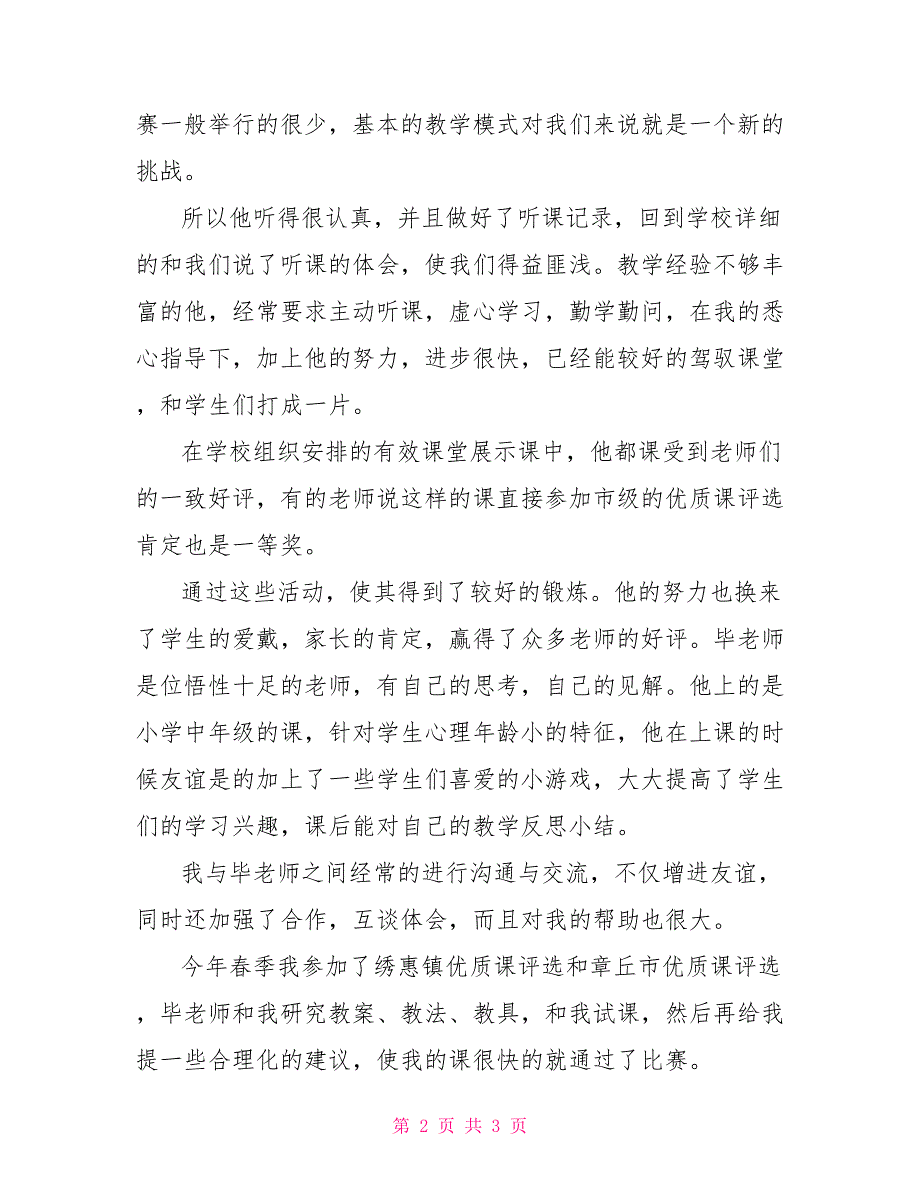 赛一般举行的很少，基本的教学模式对我们来说就是一个新的
挑战。
所以他听得很认真，并且做好了听课记录，回到学校详细
的和我们说了听课的体会，使我们得益匪浅。教学经验不够丰
富的他，经常要求主动听课，虚心学习，勤学勤问，在我的悉
心指导下，加上他的努力，进步很快，已经能较好的驾驭课堂
，和学生们打成一片。
在学校组织安排的有效课堂展示课中，他都课受到老师们
的一致好评，有的老师说这样的课直接参加市级的优质课评选
肯定也是一等奖。
通过这些活动，使其得到了较好的锻炼。他的努力也换来
了学生的爱戴，家长的肯定，赢得了众多老师的好评。毕老师
是位悟性十足的老师，有自己的思考，自己的见解。他上的是
小学中年级的课，针对学生心理年龄小的特征，他在上课的时
候友谊是的加上了一些学生们喜爱的小游戏，大大提高了学生
们的学习兴趣，课后能对自己的教学反思小结。
我与毕老师之间经常的进行沟通与交流，不仅增进友谊，
同时还加强了合作，互谈体会，而且对我的帮助也很大。
今年春季我参加了绣惠镇优质课评选和章丘市优质课评选
，毕老师和我研究教案、教法、教具，和我试课，然后再给我
提一些合理化的建议，使我的课很快的就通过了比赛。
第 2 页 共 3 页